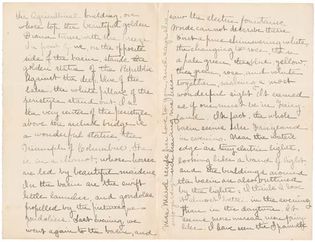 the Agricultural building, on
whose top the beautiful golden
Diana turns with the breeze.
In front of me, on the opposite
side of the basin, stands the
golden statue of the Republic
against the deep blue of the
lake, the white pillars of the
peristyle stand out. In
the very center of the peristyle,
above the arched bridge is
a wonderful statue, the
Triumph of Columbus. He
is in a chariot, whose horses
are led by beautiful maidens.
In the basin are the swift
little launches, and gondolas
propelled by the picturesque
gondoliers. Last evening, we
went again to the basin, and
saw the electric fountains.
Words cannot describe them.
First a pure shimmering white,
then changing to rose, then
a pale green, then blue, yellow,
then green, rose and violet
together, making a most
wonderful sight. It seemed
as if one must be in fairy
land. In fact, the whole
scene seems like fairyland
in evening. Near the water
edge are tiny electric lights,
looking like a band of light
and the buildings around
the basin are also outlined
by the lights. I think I love
it almost better in the evening
than in the daytime. It
seems more unreal and fairy
like. I have seen the Spanish